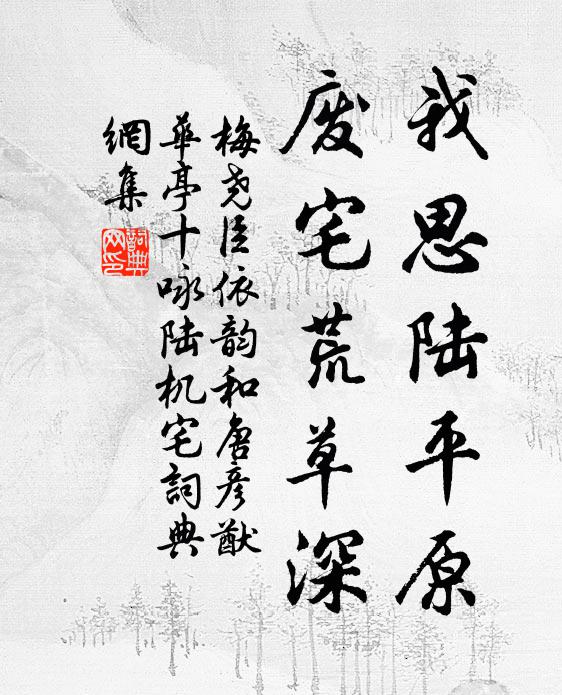 我思陆平原
废宅荒草深
梅尧臣依韵和唐彦猷
華亭十咏陆机宅詞典
網集
詞典
网印